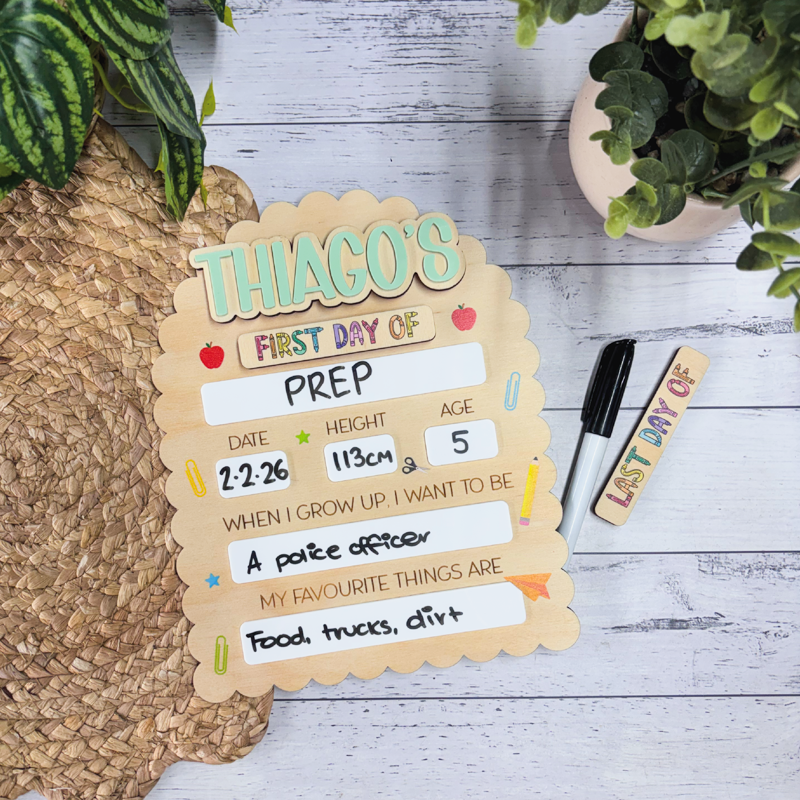 THIAGO'S
FIRST DAY OF
PREP
DATE HEIGHT AGE
2·2·26 113CM 5
WHEN I GROW UP, I WANT TO BE
A police officer
MY FAVOURITE THINGS ARE
Food, trucks, dirt
LAST DAY OF